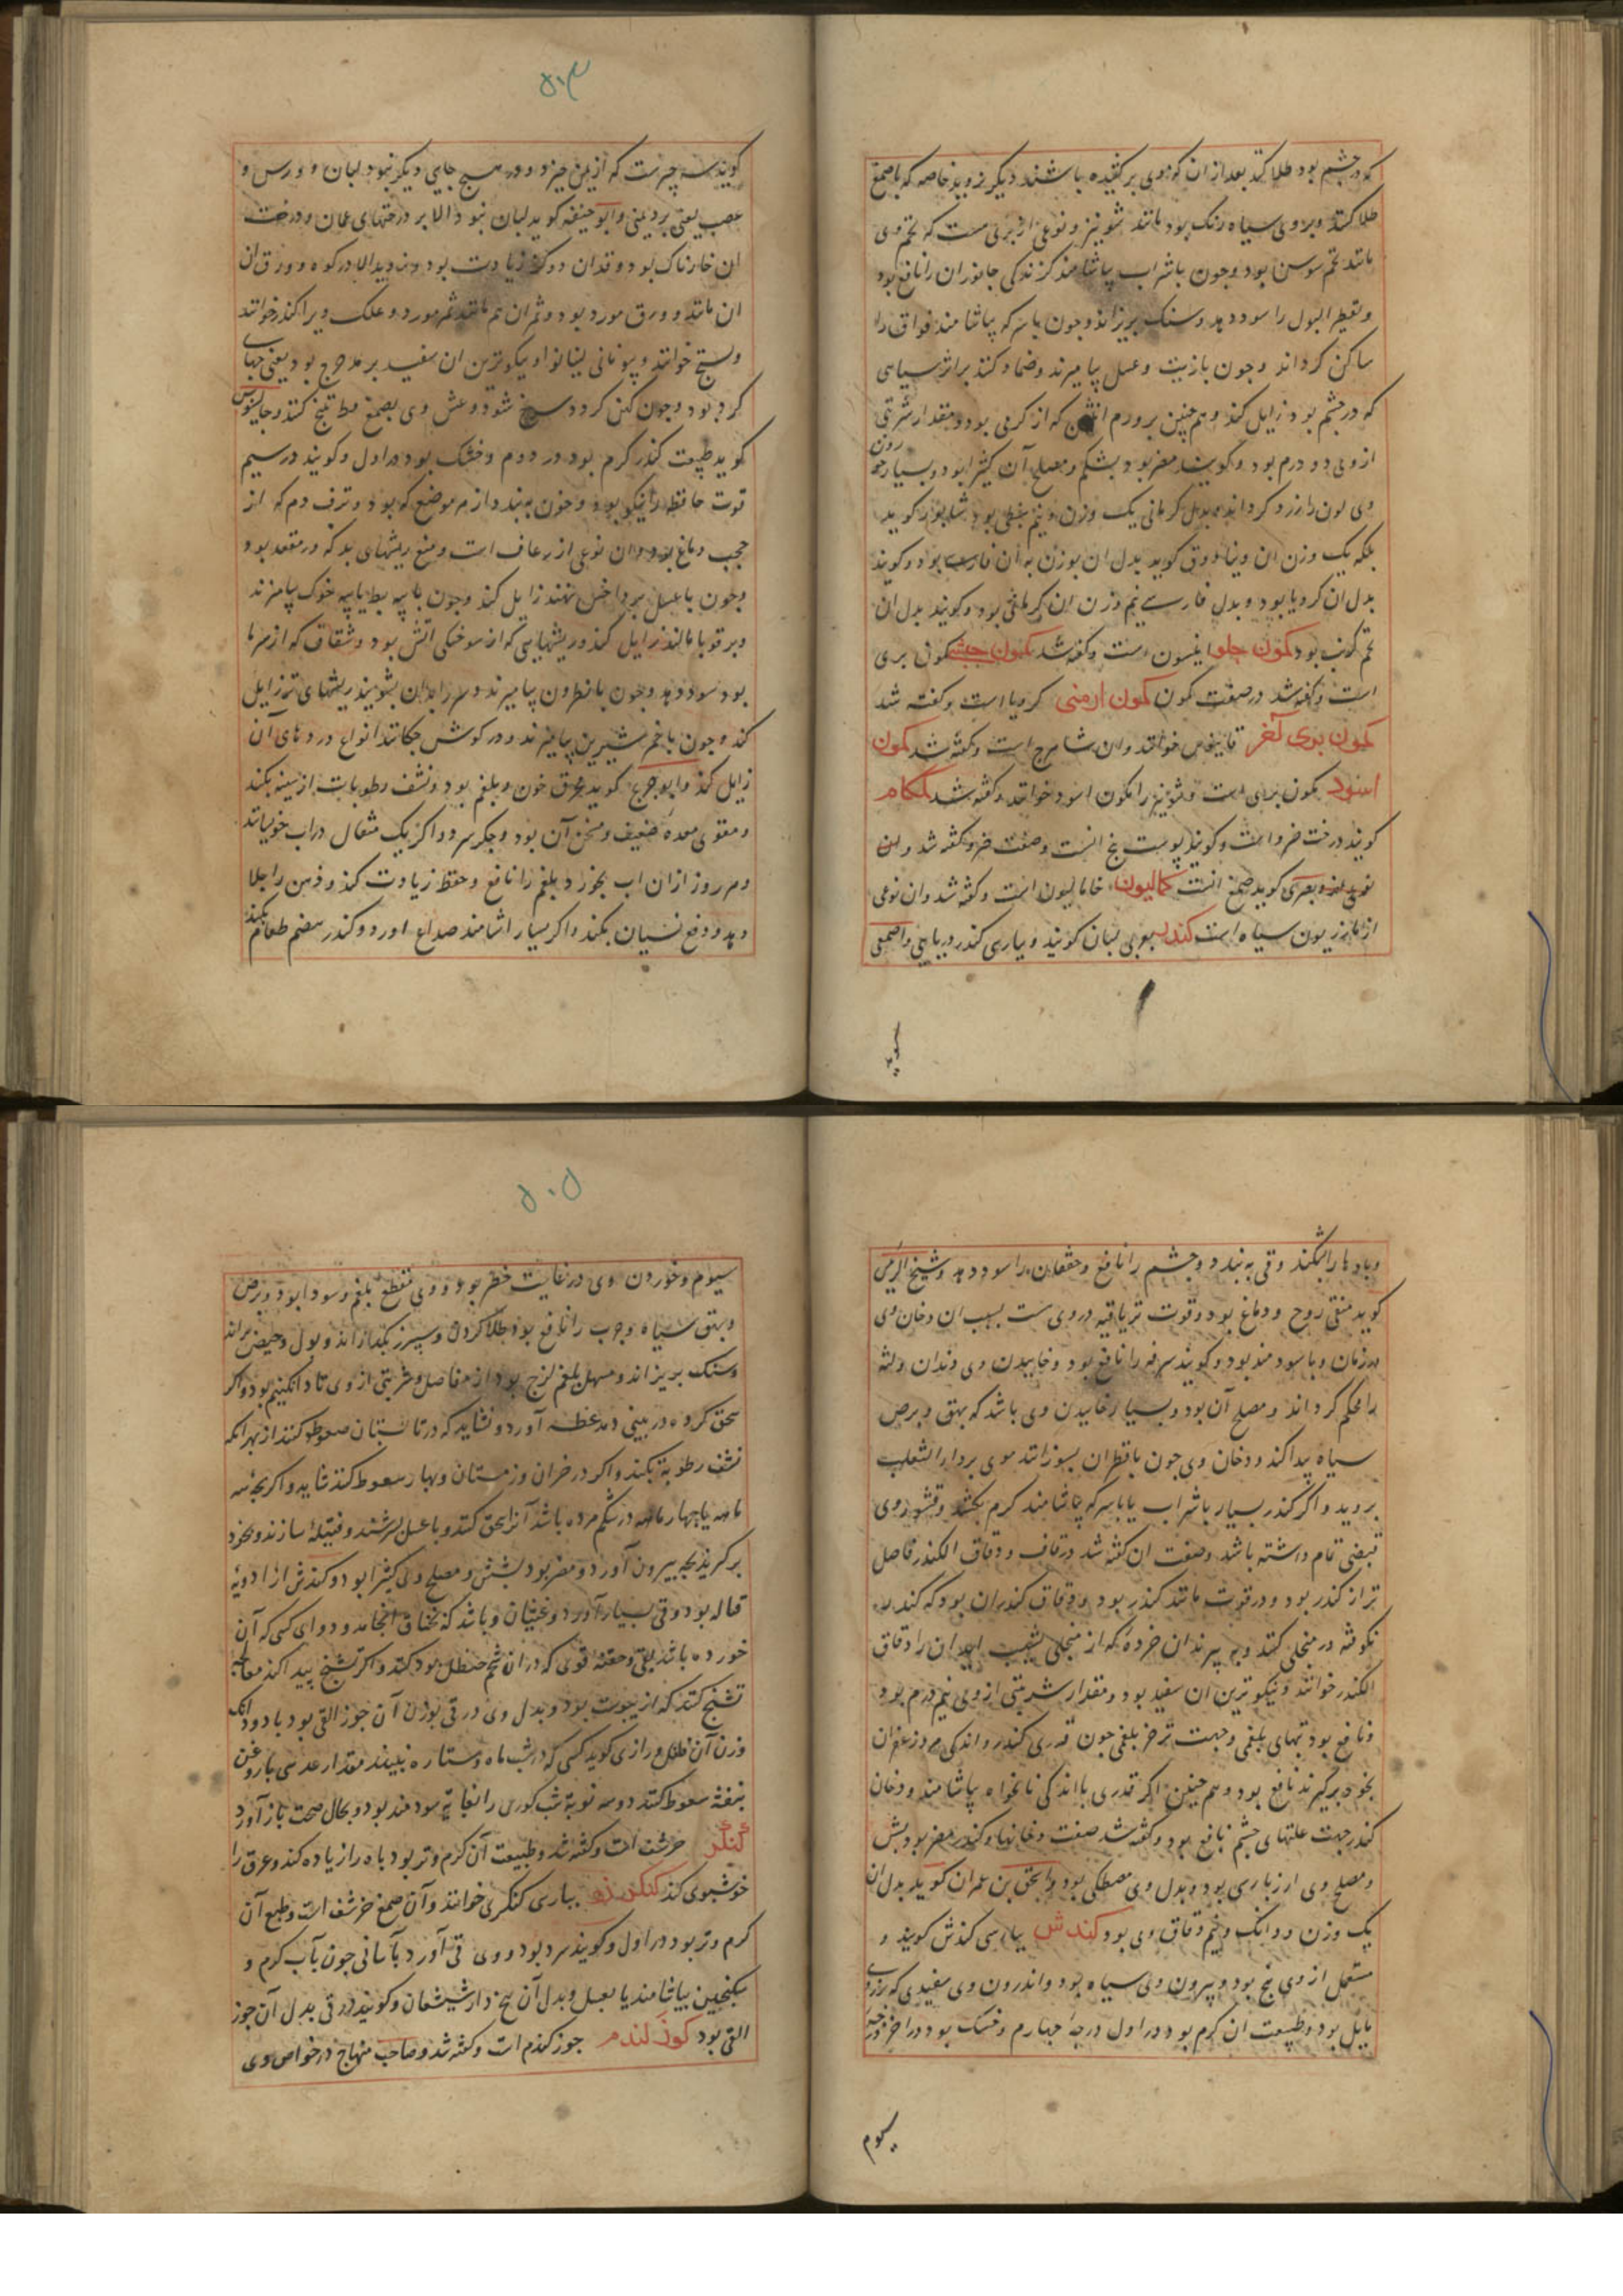 که در چشم بود طلا کند بعد از ان که موی برکنیده باشند دیگر نروید خاصه که با صمغ
طلا کنند و بروی سیاه رنک بود مانند شونیز و نوعی از بری هست که تخم وی
مانند تخم سوسن بود و چون با شراب بیاشامند کزندکی جانوران را نافع بود
و تقطیر البول را سود دهد و سنک بریزاند و چون با سرکه بیاشامند فواق را
ساکن کرداند و چون با زیت و عسل بیامیزند و ضماد کنند بر اثر سیاهی
که در چشم بود زایل کند و هم چنین بر ورم انثیین که از کرمی بود و مقدار شربتی
از وی دو درم بود و کویند مضر بود بشکم و مصلح آن کثیرا بود و بسیار خوردن
وی لون را زرد کرداند و بدل کرمانی یک وزن و نیم نبطی بود شاپور کوید
بلکه یک وزن ان و دینا کوید بدل ان بوزن به ان فارسی بود و کویند
بدل ان کرویا بود و بدل فارسی نیم وزن ان کرمانی بود و کویند بدل ان
تخم کرنب بود کمون حلو انیسون است و کفته شد کمون حبشی کمون بری
است و کفته شد در صفت کمون کمون ارمنی کرویا است و کفته شد
کمون بری آخر خوانند وان شاهترج است و کفته شد کمون
اسود کمون بری است و شونیز را کمون اسود خوانند و کفته شد کمکام
کویند درخت ضرو است و کویند پوست بیخ انست و صفت ضرو کفته شد و ابن
بصری کوید صمغ انست کمالیون خامالیون است و کفته شد وان نوعی
از مازریون سیاه است کندر بعربی لبان کویند و بپارسی کندر دریایی و اصمعی
کوید
۵۰۴
کوید سه چیزست که از یمن خیزد و در هیچ جایی دیکر نبود لبان و ورس و
عصب یعنی برد یمنی و ابو حنیفه کوید لبان نبود الا بر درختهای عمان و درخت
ان خارناک بود و قد ان دو کز زیادت بود و نروید الا در کوه و ورق ان
ان مانند ورق مورد بود و ثمر ان هم مانند ثمر مورد و علک ویرا کندر خوانند
و بستج خوانند و یونانی لیبانوا و نیکوترین ان سفید مدحرج بود یعنی حبهای
کرد بود و چون کهن کردد سرخ شود و غش وی بصمغ کنند و جالینوس
کوید طبیعت کندر کرم بود در دوم و خشک بود در اول و کویند در سیم
قوت حافظه را نیکو بود و خون ببندد از هر موضع که بود و نزف دم که از
حجب دماغ بود وان نوعی از رعاف است و منع ریشهای بد که در مقعد بود
و چون با عسل بر داخس نهند زایل کند و چون با پیه بط یا پیه خوک بیامیزند
و بر قوبا مالند زایل کند و ریشهایی که از سوختکی اتش بود و شقاق که از سرما
بود سود دهد و چون با نطرون بیامیزند و سر را بدان بشویند ریشهای تر زایل
کند و چون با خمر شیرین بیامیزند و در کوش چکانند انواع دردهای آن
زایل کند و ابو جریج کوید محرق خون و بلغم بود و نشف رطوبات از سینه بکند
و مقوی معدهٔ ضعیف و مسخن آن بود و جکر سرد و اکر یک مثقال در آب خیسانند
و هر روز از ان اب بخورند بلغم را نافع و حفظ زیادت کند و ذهن را جلا
دهد و دفع نسیان بکند و اکر بسیار اشامند صداع اورد و کندر هضم طعام بکند
و بادها را بشکند و قی ببندد و چشم را نافع و خفقان را سود دهد و شیخ الرئیس
کوید منقی روح و دماغ بود و قوت تریاقیه در وی ست بسبب ان دخان وی
در زمان وبا سودمند بود و کویند سرفه را نافع بود و خاییدن وی دندان و لثه
را محکم کرداند و مصلح آن بود و بسیار خاییدن وی باشد که بهق و برص
سیاه پیدا کند و دخان وی چون با قطران بسوزانند موی بر دار الثعلب
بروید و اکر کندر بسیار با شراب یا با سرکه بیاشامند کرم بکشد و قشور وی
قبضی تمام داشته باشد و صفت ان کفته شد در قاف و دقاق الکندر فاضل
تر از کندر بود و در قوت مانند کندر بود و دقاق کندر ان بود که کندر
نکوفته در منخلی کنند و به بیزند ان خرده که از منخل بشیب اید ان را دقاق
الکندر خوانند و نیکوترین ان سفید بود و مقدار شربتی از وی نیم درم بود
و نافع بود تبهای بلغمی و جهت بلغمی چون قدری کندر و اندکی مر و زعفران
بخود برکیرند نافع بود و هم چنین اکر قدری با اندکی نانخواه بیاشامند و دخان
کندر جهت علتهای چشم نافع بود و کفته شد صفت دخانها و کندر مضر بود بشش
و مصلح وی بود و بدل وی مصطکی بود و اسحق بن عمران کوید بدل ان
یک وزن و دانک و نیم دقاق وی بود کندش بپارسی کندش کویند و
مستعمل از وی بیخ بود و بیرون وی سیاه بود و اندرون وی سفیدی که بزردی
مایل بود و طبیعت ان کرم بود در اول درجهٔ چهارم و خشک بود در اخر درجه
سیوم
۵۰۵
سیوم و خوردن وی در غایت خطر بود و وی مقطع بلغم و سودا بود و برص
و بهق سیاه و جرب را نافع بود طلا کردن و سپرز بکدازاند و بول و حیض براند
و سنک بریزاند و مسهل بلغم لزج بود از مفاصل و شربتی از وی تا دانکی و نیم بود و اکر
سحق کرده در بینی دمند عطسه آورد و نشاید که در تابستان سعوط کنند از بهر انکه
نشف رطوبة بکند و اکر در خزان و زمستان و بهار سعوط کنند شاید و اکر بچه سه
ماهه یا چهار ماهه در شکم مرده باشد آنرا سحق کنند و با عسل بسرشند و فتیله سازند و بخود
برکیرند بچه بیرون آورد و مضر بود بشش و مصلح وی کثیرا بود و کندش از ادویهٔ
قتاله بود و قی بسیار آورد و غثیان و باشد که بخناق انجامد و دوای کسی که آن
خورده باشد بقی و حقنهٔ قوی که در ان شحم حنظل بود کنند و اکر تشنج پیدا کند معالجهٔ
تشنج کنند که از یبوست بود و بدل وی در قی بوزن آن جوز القی بود با دو دانک
وزن آن فلفل و رازی کوید کسی که در شب ماه و ستاره نبیند مقدار عدسی با روغن
بنفشه سعوط کنند دو سه نوبة شب کوری را بغایة سودمند بود و بحال صحت باز آورد
کنکر حرشف است و کفته شد و طبیعت آن کرم و تر بود باه را زیاده کند و عرق را
خوشبوی کند کنکر زد بپارسی کنکری خوانند و آن صمغ حرشف است و طبع آن
کرم و تر بود در اول و کویند سرد بود و وی قی آورد بآسانی چون بآب کرم و
سکنجبین بیاشامند یا بعسل و بدل آن بیخ دارشیشعان و کویند در قی بدل آن جوز
القی بود کوز کندم جوز کندم است و کفته شد و صاحب منهاج در خواص وی